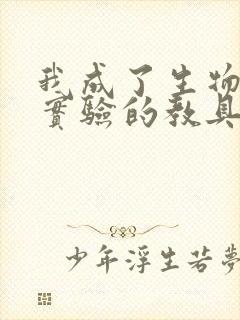 我成了生物
實驗的教具
少年浮生若夢